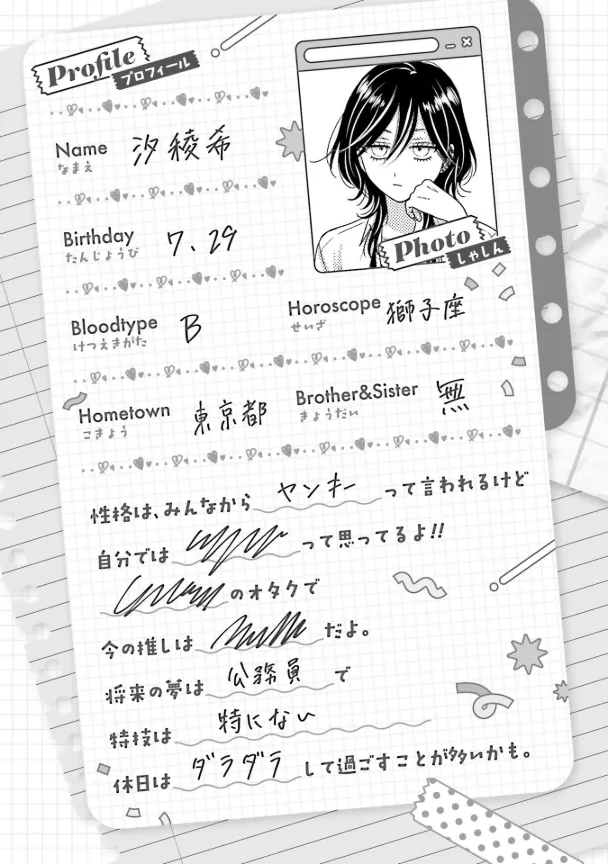 Profile
プロフィール
Name 汐 綾希
なまえ
Birthday 7.29
たんじょうび
Photo
しゃしん
Bloodtype B
けつえきがた
Horoscope 獅子座
せいざ
Hometown 東京都
こきょう
Brother&Sister 無
きょうだい
性格は、みんなから ヤンキー って言われるけど
自分では って思ってるよ!!
のオタクで
今の推しは だよ。
将来の夢は 公務員 で
特技は 特にない
休日は ダラダラ して過ごすことが多いかも。